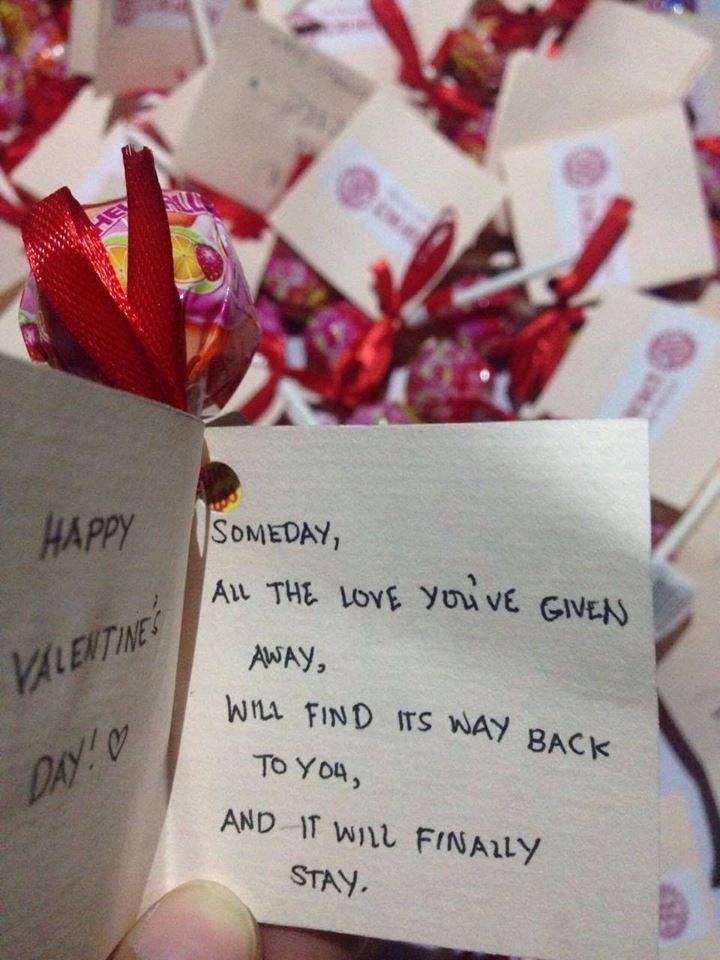 HAPPY
VALENTINE'S
DAY! ♡
SOMEDAY,
ALL THE LOVE YOU'VE GIVEN
AWAY,
WILL FIND ITS WAY BACK
TO YOU,
AND IT WILL FINALLY
STAY.